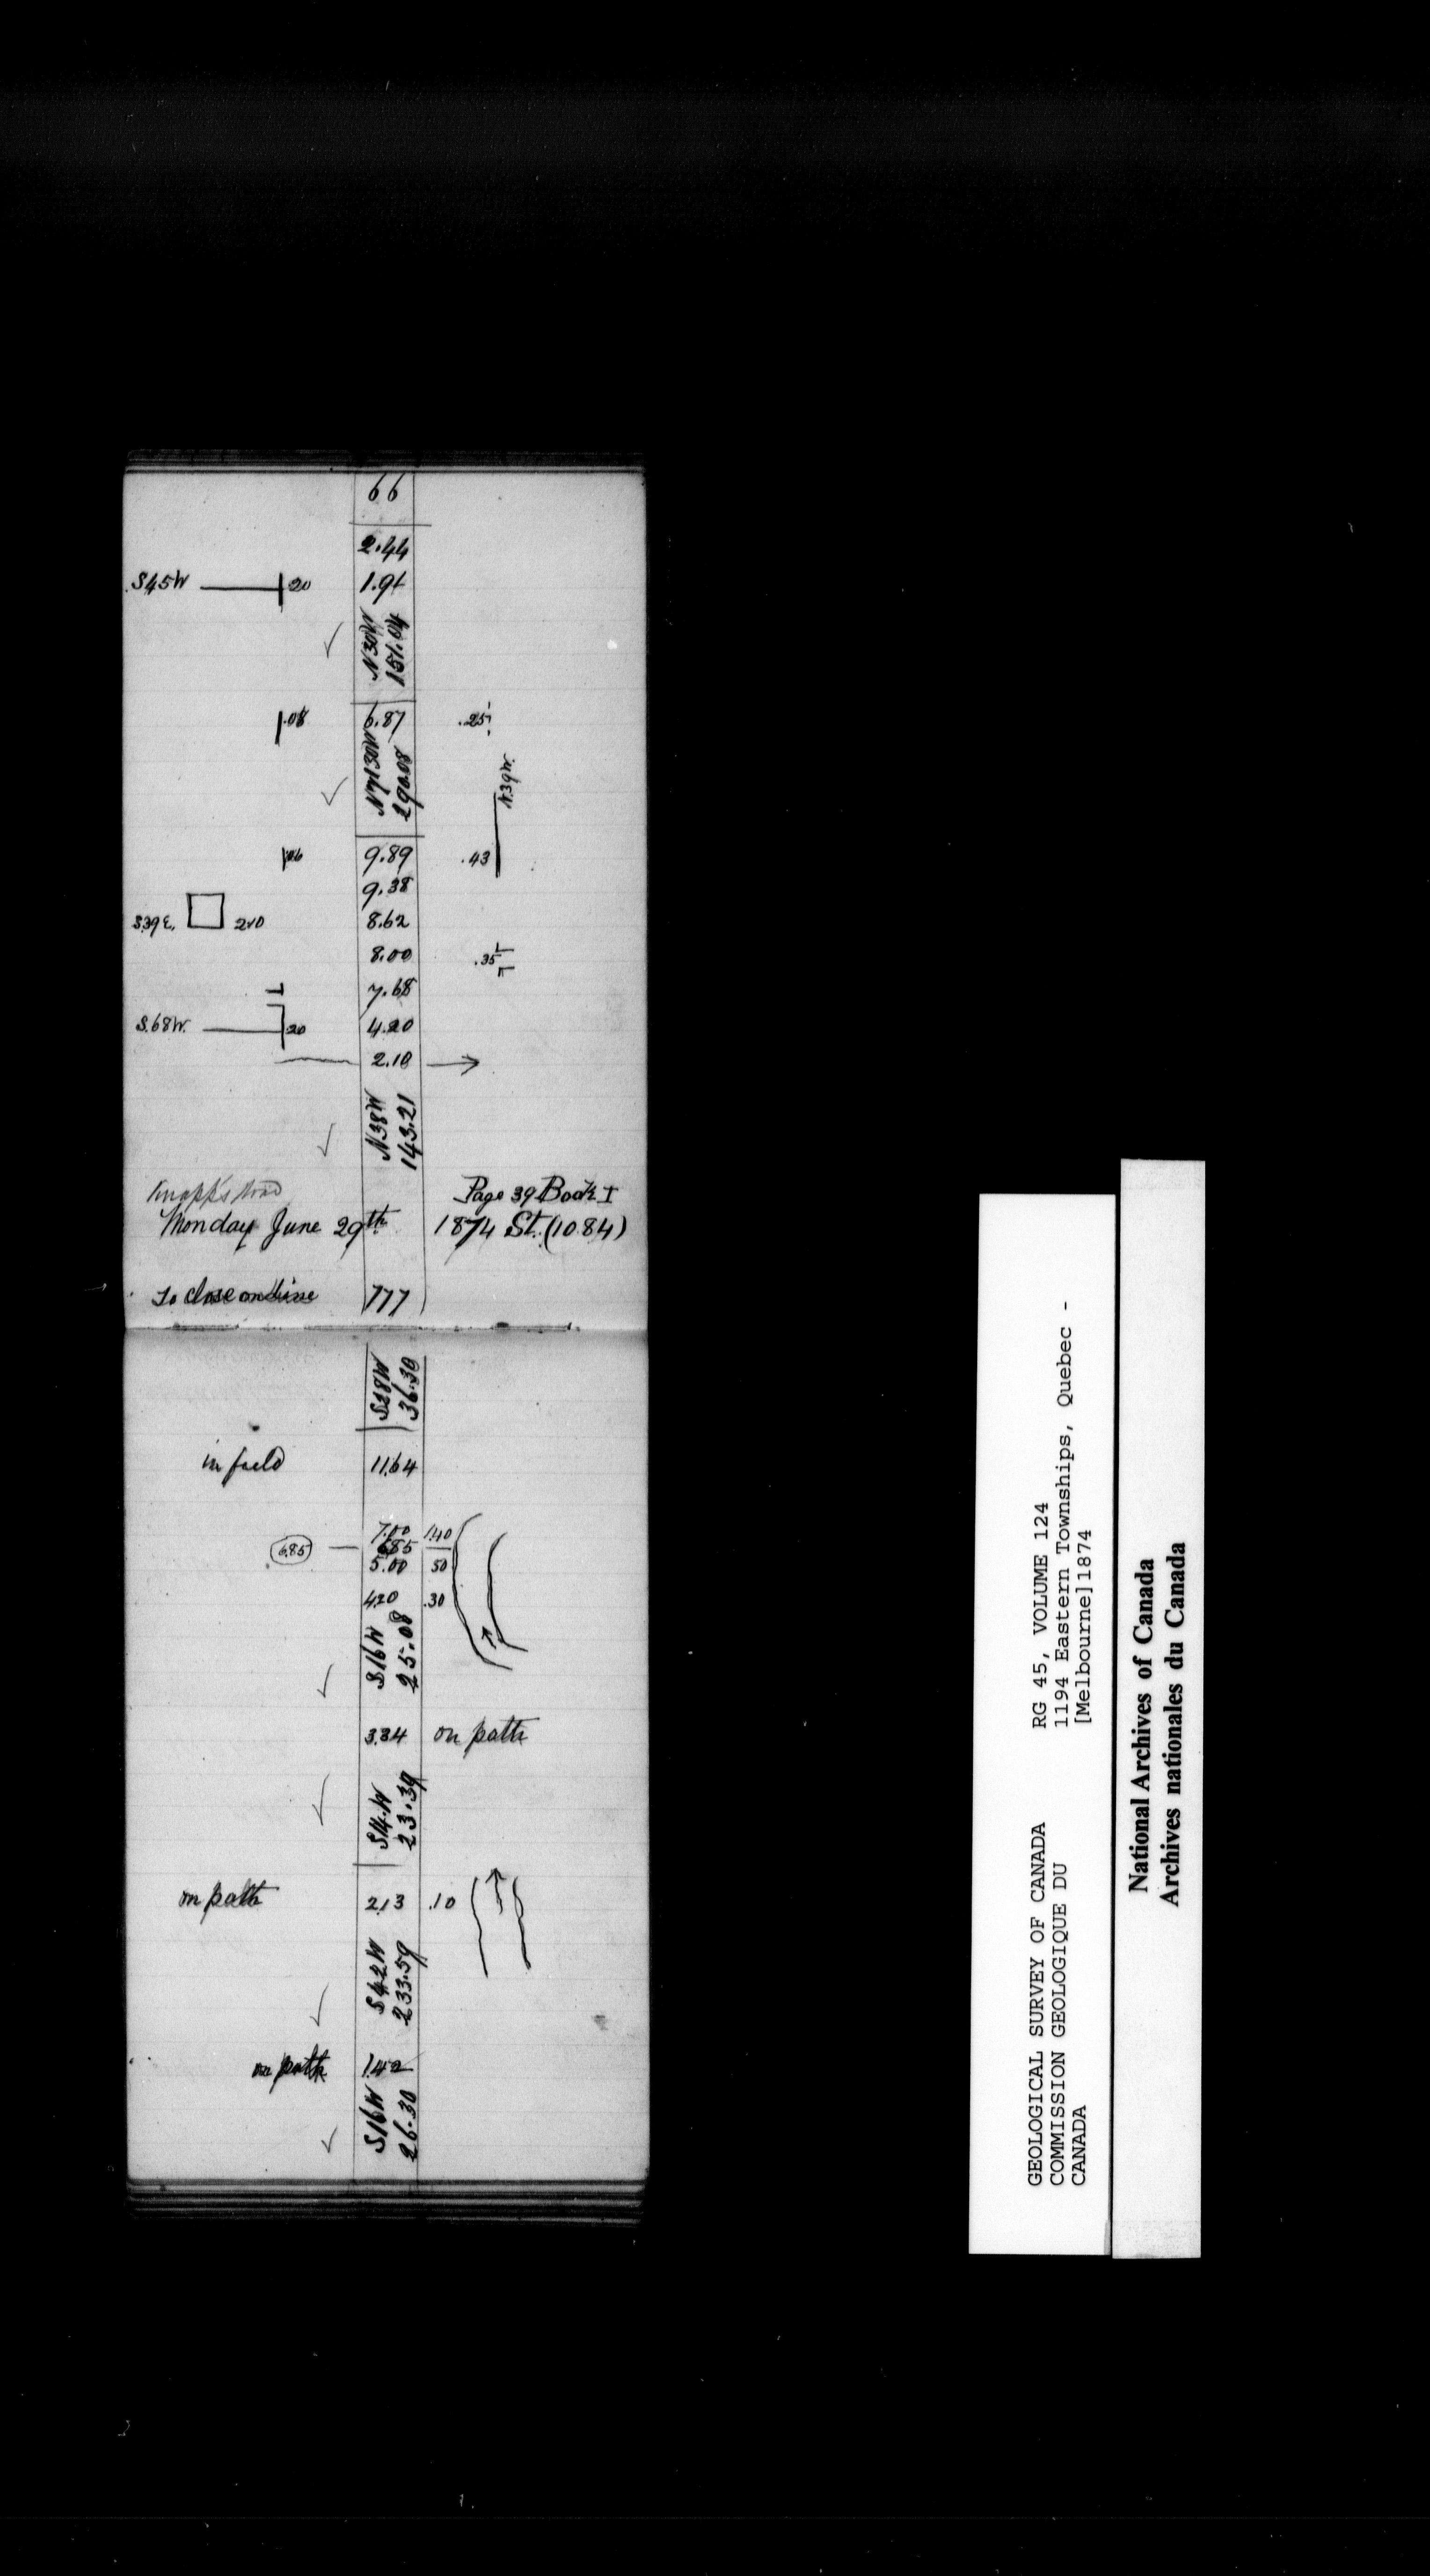 66
2.44
S45W 20 1.91
N30W
151.04
.08 6.87 .25
N7130W
290.08
N.39W.
.06 9.89 .43
9.38
S39E. 2v0 8.62
8.00 .35
7.68
S.68W. 20 4.20
2.10
N38W
143.21
Knapps road Page 39 Book I
Monday June 29th 1874 St. (10.84)
To close on line 777
S28W
36.30
in field 11.64
7.00 1.40
6.85 6.85
5.00 50
4.20 .30
S16W
25.08
3.34 on path
S14.W
23.39
on path 2.13 .10
S42W
233.59
on path 1.42
S16W
26.30
GEOLOGICAL SURVEY OF CANADA
COMMISSION GEOLOGIQUE DU
CANADA
RG 45, VOLUME 124
1194 Eastern Townships, Quebec -
[Melbourne]1874
National Archives of Canada
Archives nationales du Canada